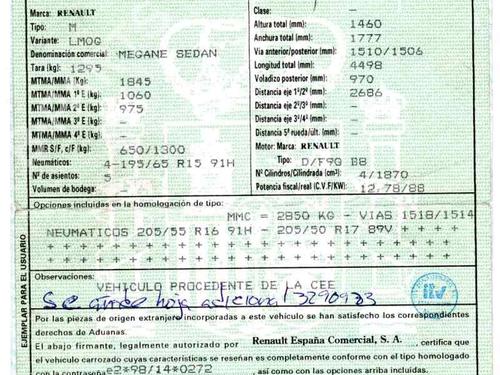 Marca: RENAULT
Tipo: M
Variante: LMOG
Denominación comercial: MEGANE SEDAN
Tara (kg): 1295
MTMA/MMA (Kg): 1845
MTMA/MMA 1ª E (kg): 1060
MTMA/MMA 2ª E (kg): 975
MTMA/MMA 3ª E (kg): -
MTMA/MMA 4ª E (kg): -
MMR S/F, c/F (kg): 650/1300
Neumáticos: 4-195/65 R15 91H
Nº de asientos: 5
Volumen de bodega: -
Clase: -
Altura total (mm): 1460
Anchura total (mm): 1777
Vía anterior/posterior (mm): 1510/1506
Longitud total (mm): 4498
Voladizo posterior (mm): 970
Distancia eje 1º/2º (mm): 2686
Distancia eje 2º/3º (mm): -
Distancia eje 3º/4º (mm): -
Distancia 5ª rueda/últ. (mm): -
Motor: Marca: RENAULT
Tipo: D/F9Q B8
Nº Cilindros/Cilindrada (cm³): 4/1870
Potencia fiscal/real (C.V.F/KW) 12,78/88
Opciones incluidas en la homologación de tipo:
MMC = 2850 KG - VIAS 1518/1514
NEUMATICOS 205/55 R16 91H - 205/50 R17 89V + + + + +
Observaciones:
VEHICULO PROCEDENTE DE LA CEE
Se hoja adicional 3290933
itv
EJEMPLAR PARA EL USUARIO
Por las piezas de origen extranjero incorporadas a este vehículo se han satisfecho los correspondientes
derechos de Aduanas.
El abajo firmante, legalmente autorizado por Renault España Comercial, S. A. , certifica que
el vehículo carrozado cuyas características se reseñan es completamente conforme con el tipo homologado
con la contraseña e2*98/14*0272 , así como con las opciones arriba incluidas.